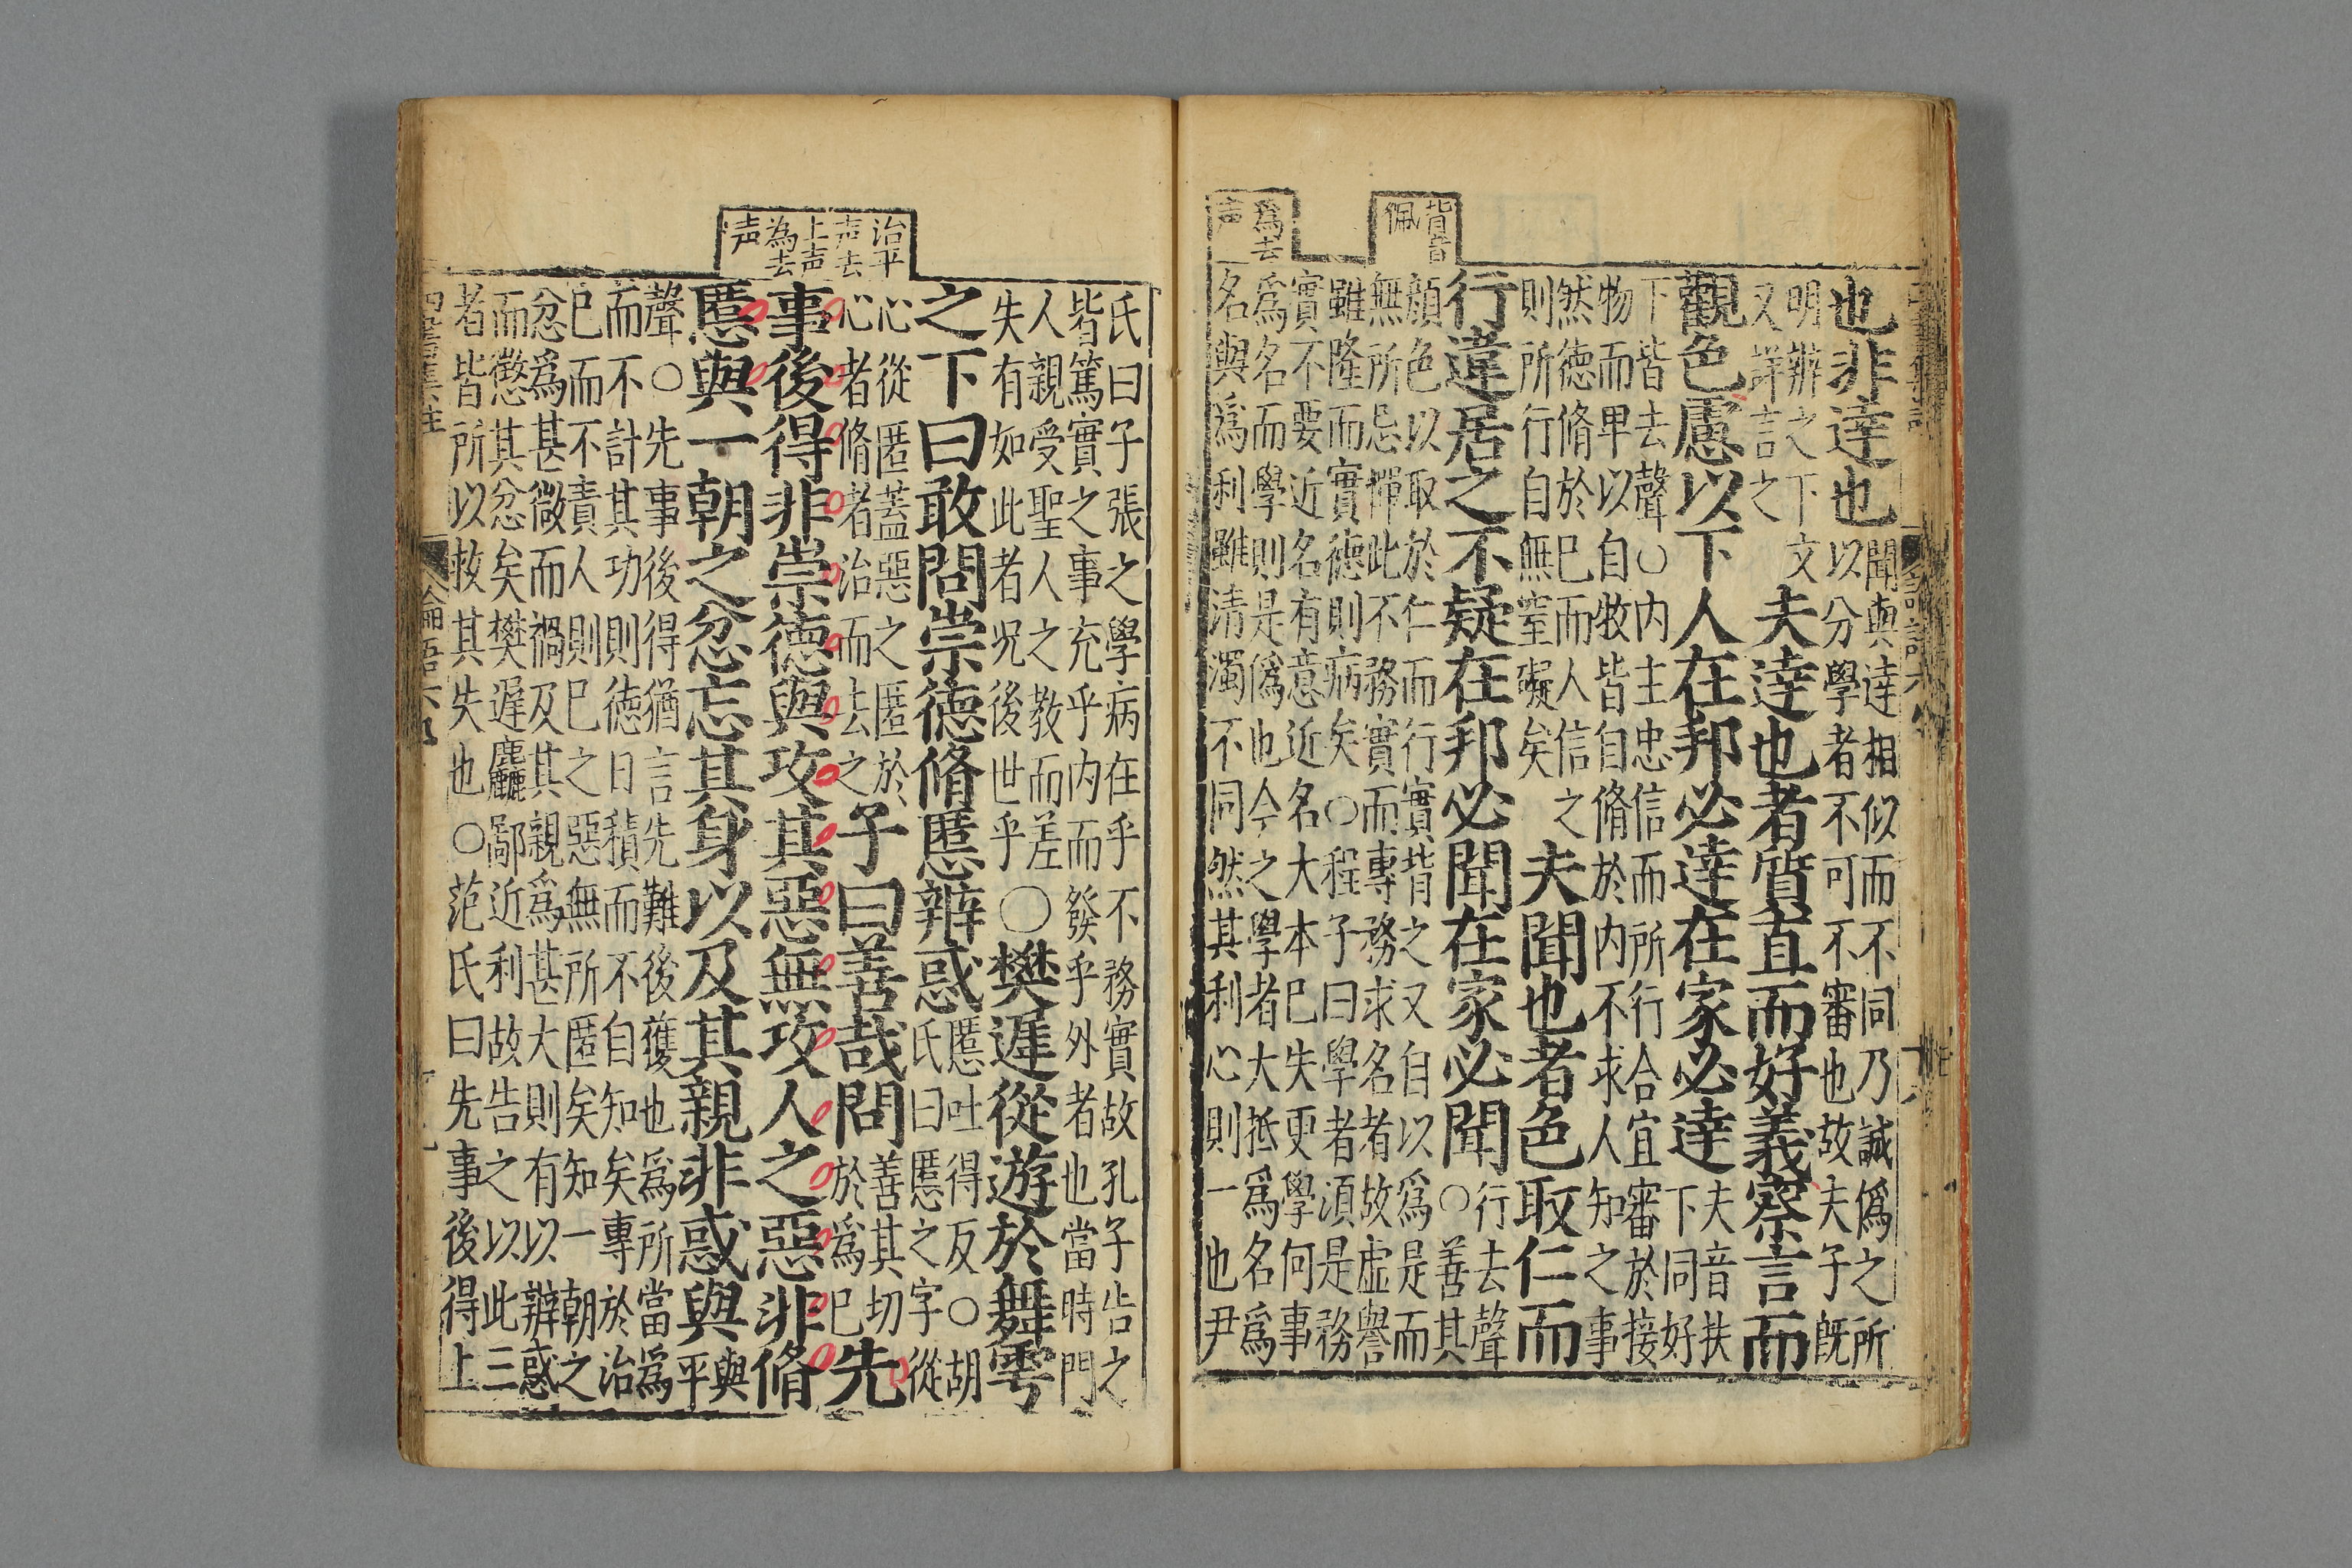 也非達也
聞與達相似而不同乃誠偽之所
以分學者不可不審也故夫子既
明辨之下文
又詳言之
夫達也者質直而好義察言而
觀色慮以下人在邦必達在家必達
夫音扶
下同好
下皆去聲○内主忠信而所行合宜審於接
物而卑以自牧皆自脩於内不求人知之事
然德脩於已而人信之
則所行自無窒礙矣
夫聞也者色取仁而
行違居之不疑在邦必聞在家必聞
行去聲
○善其
背音
佩
顔色以取於仁而行實背之又自以爲是而
無所忌憚此不務實而專務求名者故虛譽
雖隆而實德則病矣○程子曰學者須是務
實不要近名有意近名大本已失更學何事
爲去
声
爲名而學則是偽也今之學者大抵爲名爲
名與爲利雖清濁不同然其利心則一也尹
氏曰子張之學病在乎不務實故孔子告之
皆篤實之事充乎内而發乎外者也當時門
人親受聖人之教而差
失有如此者况後世乎
○樊遲從遊於舞雩
之下曰敢問崇德脩慝辨惑
慝吐得反○胡
氏曰慝之字從
治平
声去
上声
為去
声
心從匿蓋惡之匿於
心者脩者治而去之
子曰善哉問
善其切
於爲已
先
事後得非崇德與攻其惡無攻人之惡非脩
慝與一朝之忿忘其身以及其親非惑與
與平
聲○先事後得猶言先難後獲也爲所當爲
而不計其功則德日積而不自知矣專於治
已而不責人則已之惡無所匿矣知一朝之
忿爲甚微而禍及其親爲甚大則有以辨惑
而懲其忿矣樊遲麤鄙近利故告之以此三
者皆所以救其失也○范氏曰先事後得上